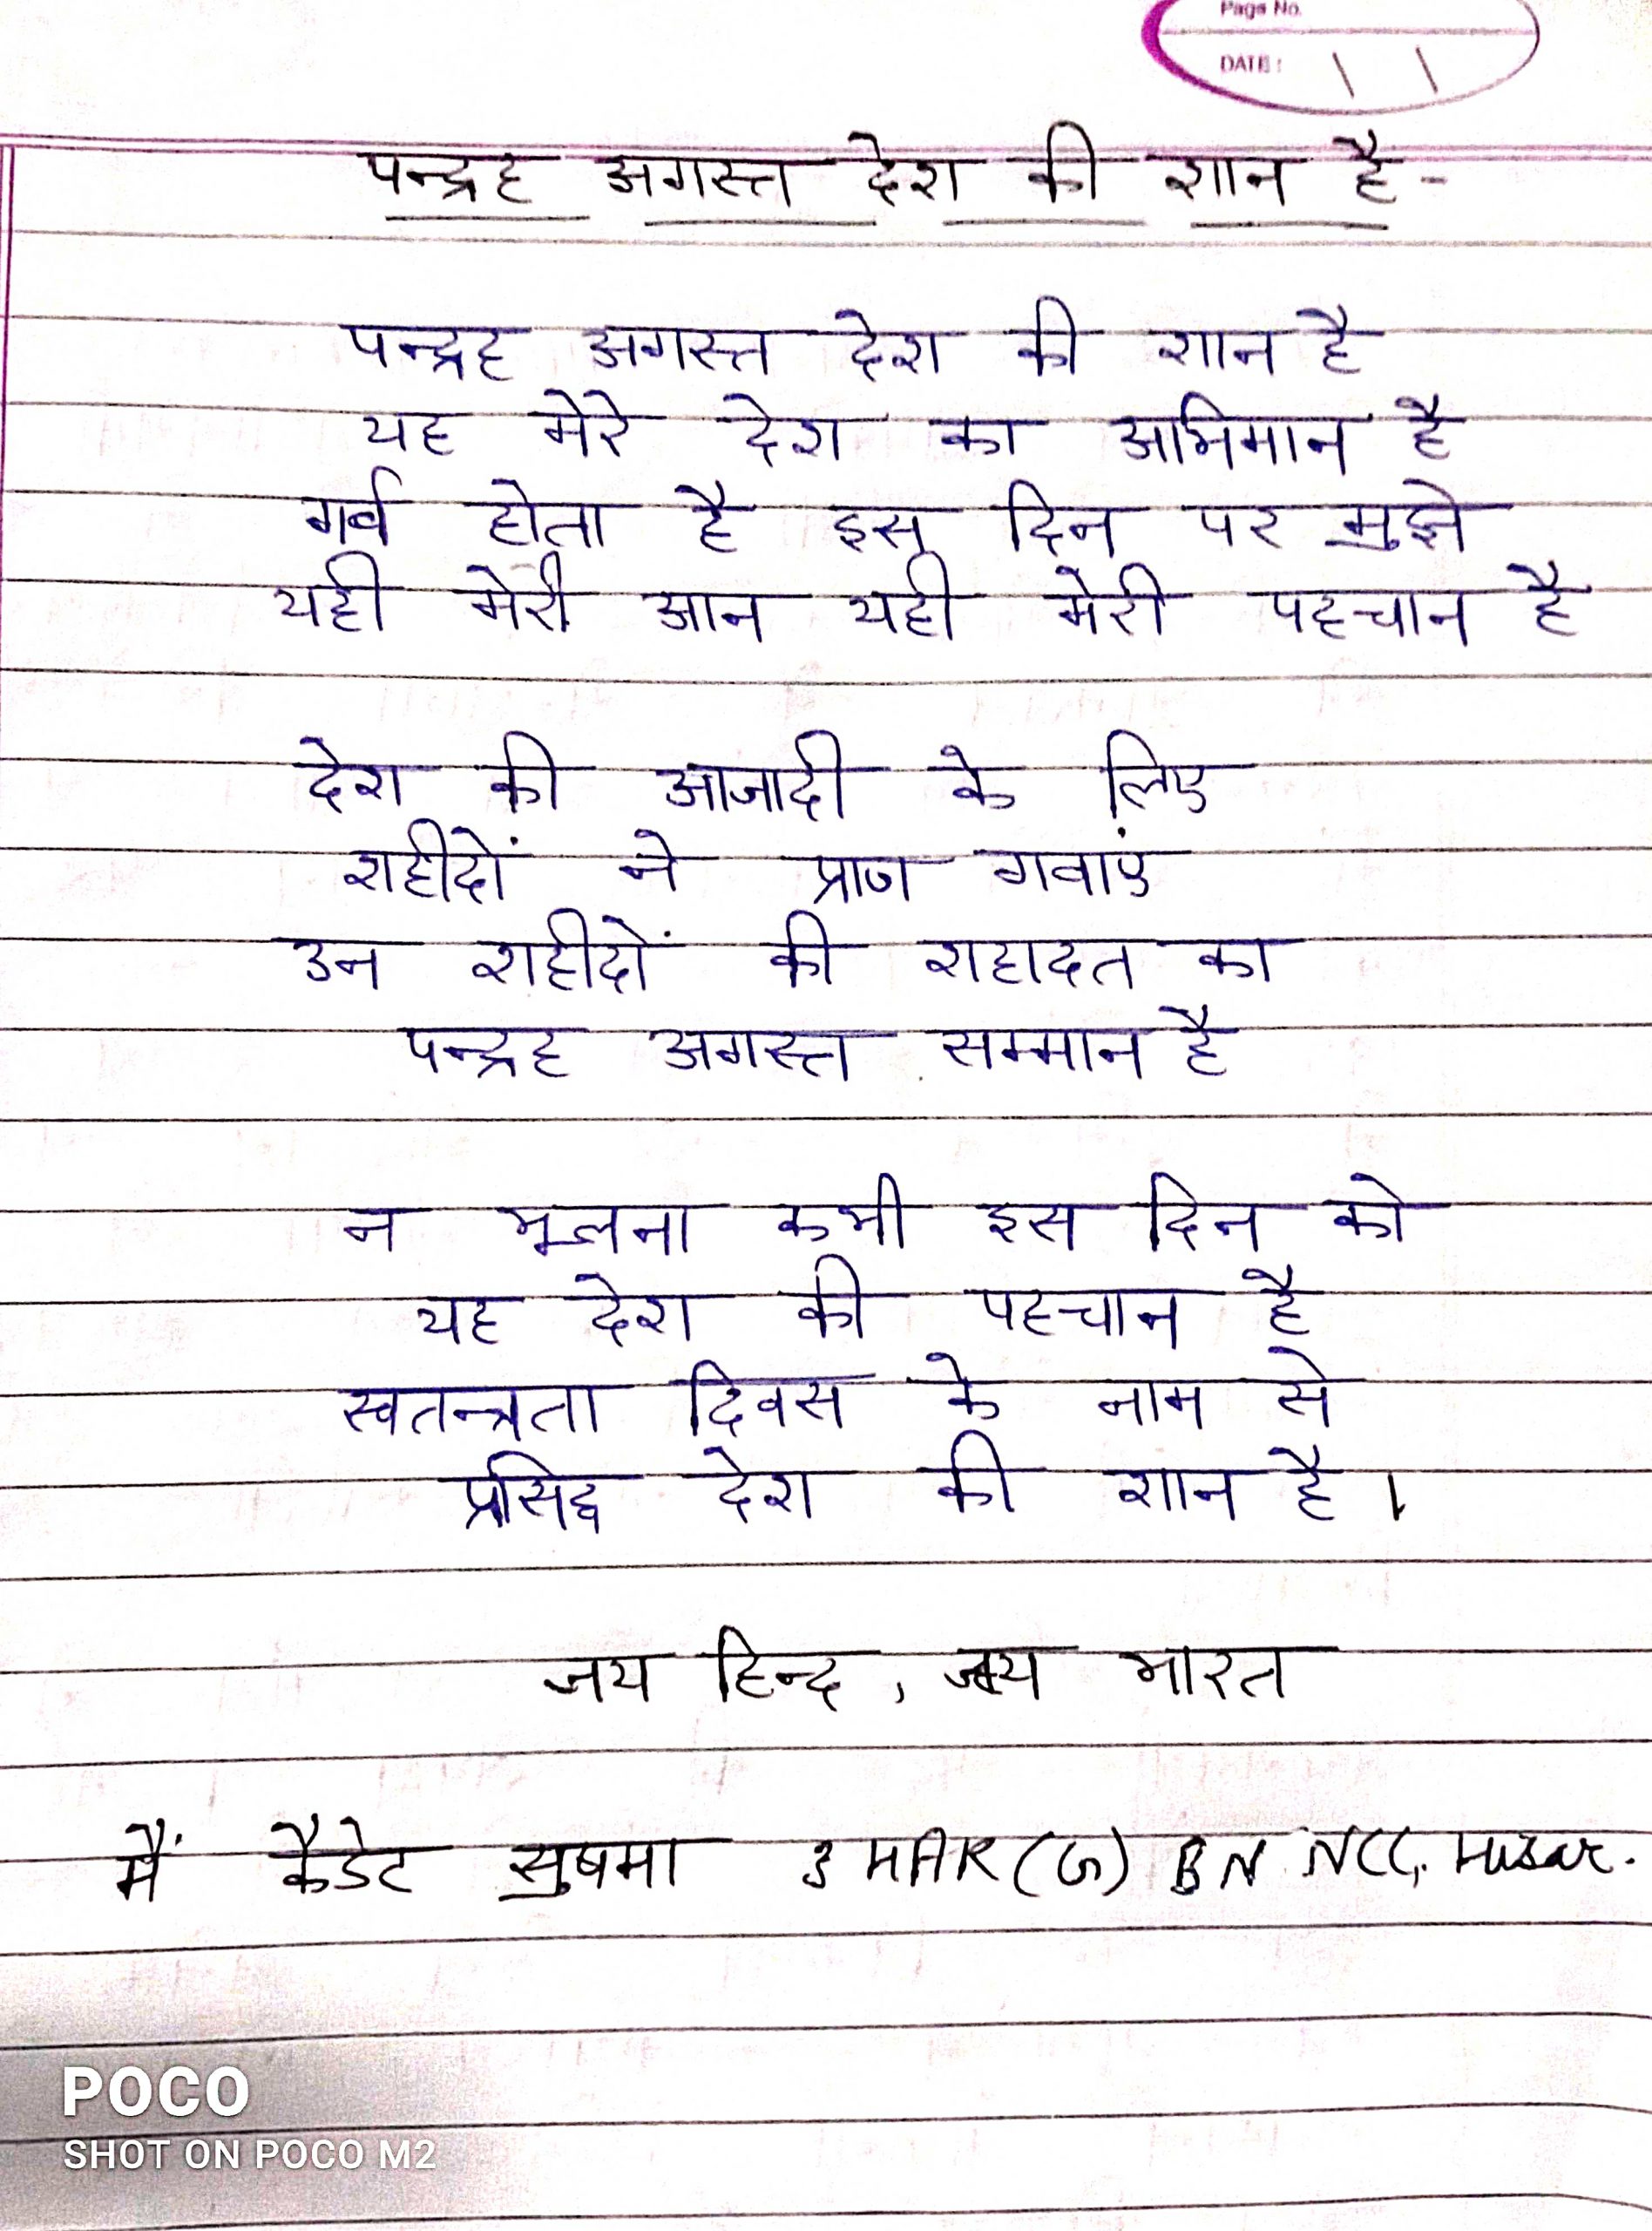 Page No.
DATE:
पन्द्रह अगस्त देश की शान है -
पन्द्रह अगस्त देश की शान है
यह मेरे देश का अभिमान है
गर्व होता है इस दिन पर मुझे
यही मेरी आन यही मेरी पहचान है
देश की आजादी के लिए
शहीदों ने प्राण गवाएं
उन शहीदों की शहादत का
पन्द्रह अगस्त सम्मान है
न भूलना कभी इस दिन को
यह देश की पहचान है
स्वतन्त्रता दिवस के नाम से
प्रसिद्ध देश की शान है।
जय हिन्द, जय भारत
मैं कैडेट सुषमा 3 HAR (G) BN NCC, Hisar.
POCO
SHOT ON POCO M2